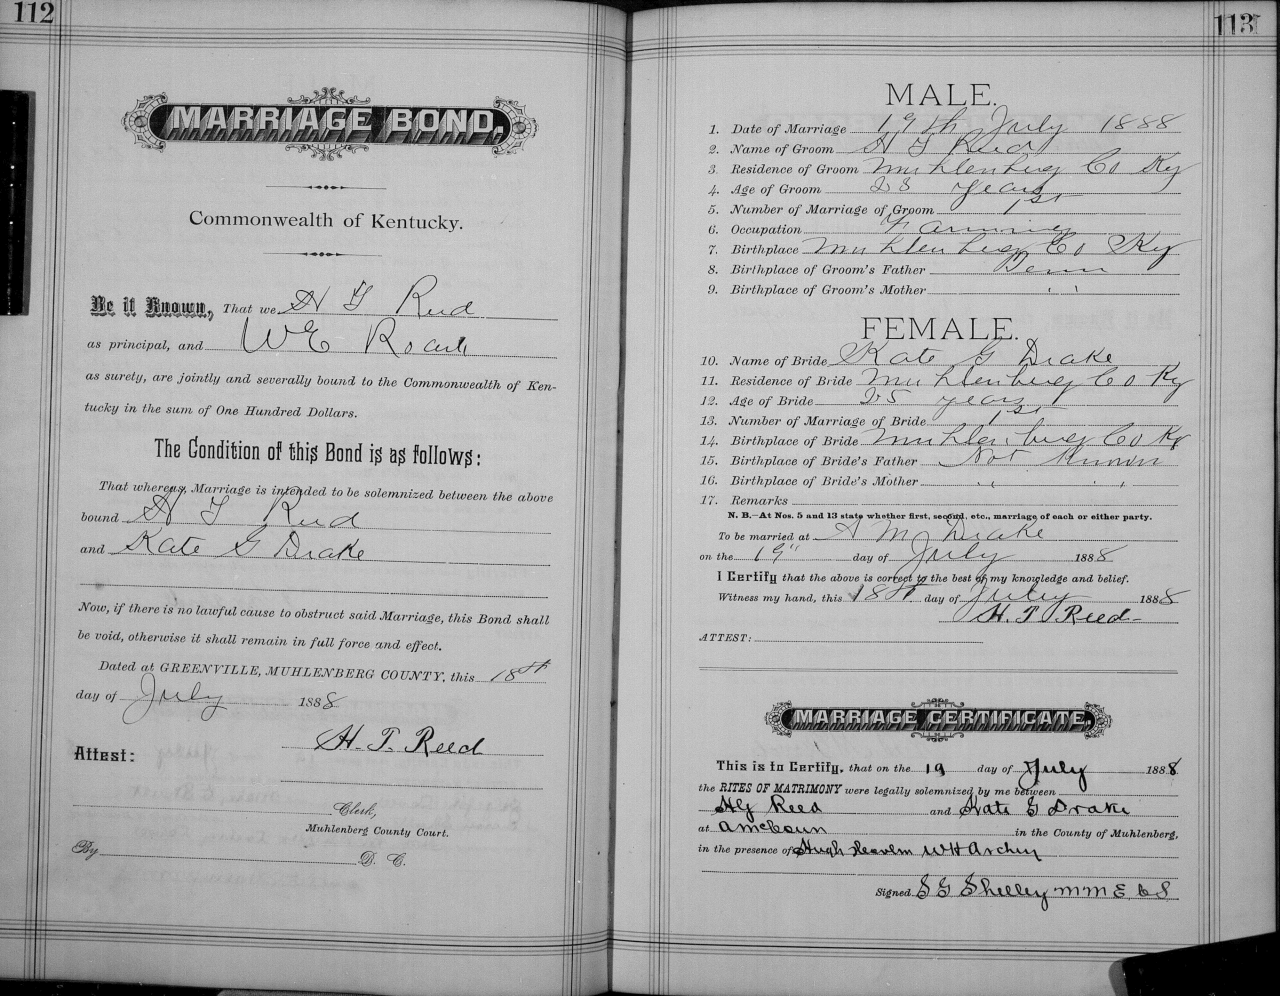 112
MARRIAGE BOND.
Commonwealth of Kentucky.
Be it Known, That we H T Reed
as principal, and W E Roark
as surety, are jointly and severally bound to the Commonwealth of Ken-
tucky in the sum of One Hundred Dollars.
The Condition of this Bond is as follows:
That whereas, Marriage is intended to be solemnized between the above
bound H T Reed
and Kate G Drake
Now, if there is no lawful cause to obstruct said Marriage, this Bond shall
be void, otherwise it shall remain in full force and effect.
Dated at GREENVILLE, MUHLENBERG COUNTY, this 18th
day of July 1888
H. T. Reed
Attest:
Clerk,
Muhlenberg County Court.
By D. C.
113
MALE.
1. Date of Marriage 19th July 1888
2. Name of Groom H T Reed
3. Residence of Groom Muhlenberg Co Ky
4. Age of Groom 23 years
5. Number of Marriage of Groom 1st
6. Occupation Farming
7. Birthplace Muhlenberg Co Ky
8. Birthplace of Groom's Father Tenn
9. Birthplace of Groom's Mother " "
FEMALE.
10. Name of Bride Kate G Drake
11. Residence of Bride Muhlenberg Co Ky
12. Age of Bride 25 years
13. Number of Marriage of Bride 1st
14. Birthplace of Bride Muhlenberg Co Ky
15. Birthplace of Bride's Father Not Known
16. Birthplace of Bride's Mother " "
17. Remarks
N. B.—At Nos. 5 and 13 state whether first, second, etc., marriage of each or either party.
To be married at M Drake
on the 19" day of July 1888
I Certify that the above is correct to the best of my knowledge and belief.
Witness my hand, this 18th day of July 1888
H. T. Reed
ATTEST:
MARRIAGE CERTIFICATE.
This is to Certify, that on the 19 day of July 1888
the RITES OF MATRIMONY were legally solemnized by me between
Reed and Kate G Drake
at in the County of Muhlenberg,
in the presence of Hugh W H Archey
Signed S G Shelley M M E C S